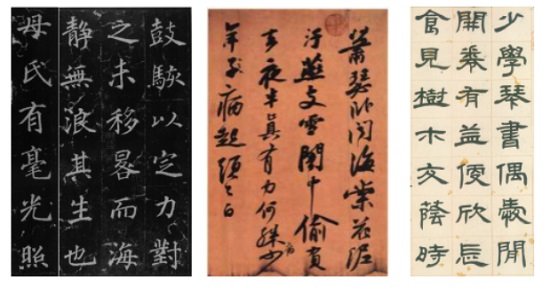 鼓駭以定力對
之未移晷而海
静無浪其生也
母氏有毫光照
蕭瑟卧聞海棠花泥
汙燕支雪闇中偷負
去夜半真有力何殊少
年子病起頭已白
少學琴書偶愛閒
開卷有益便欣
食見樹木交蔭時